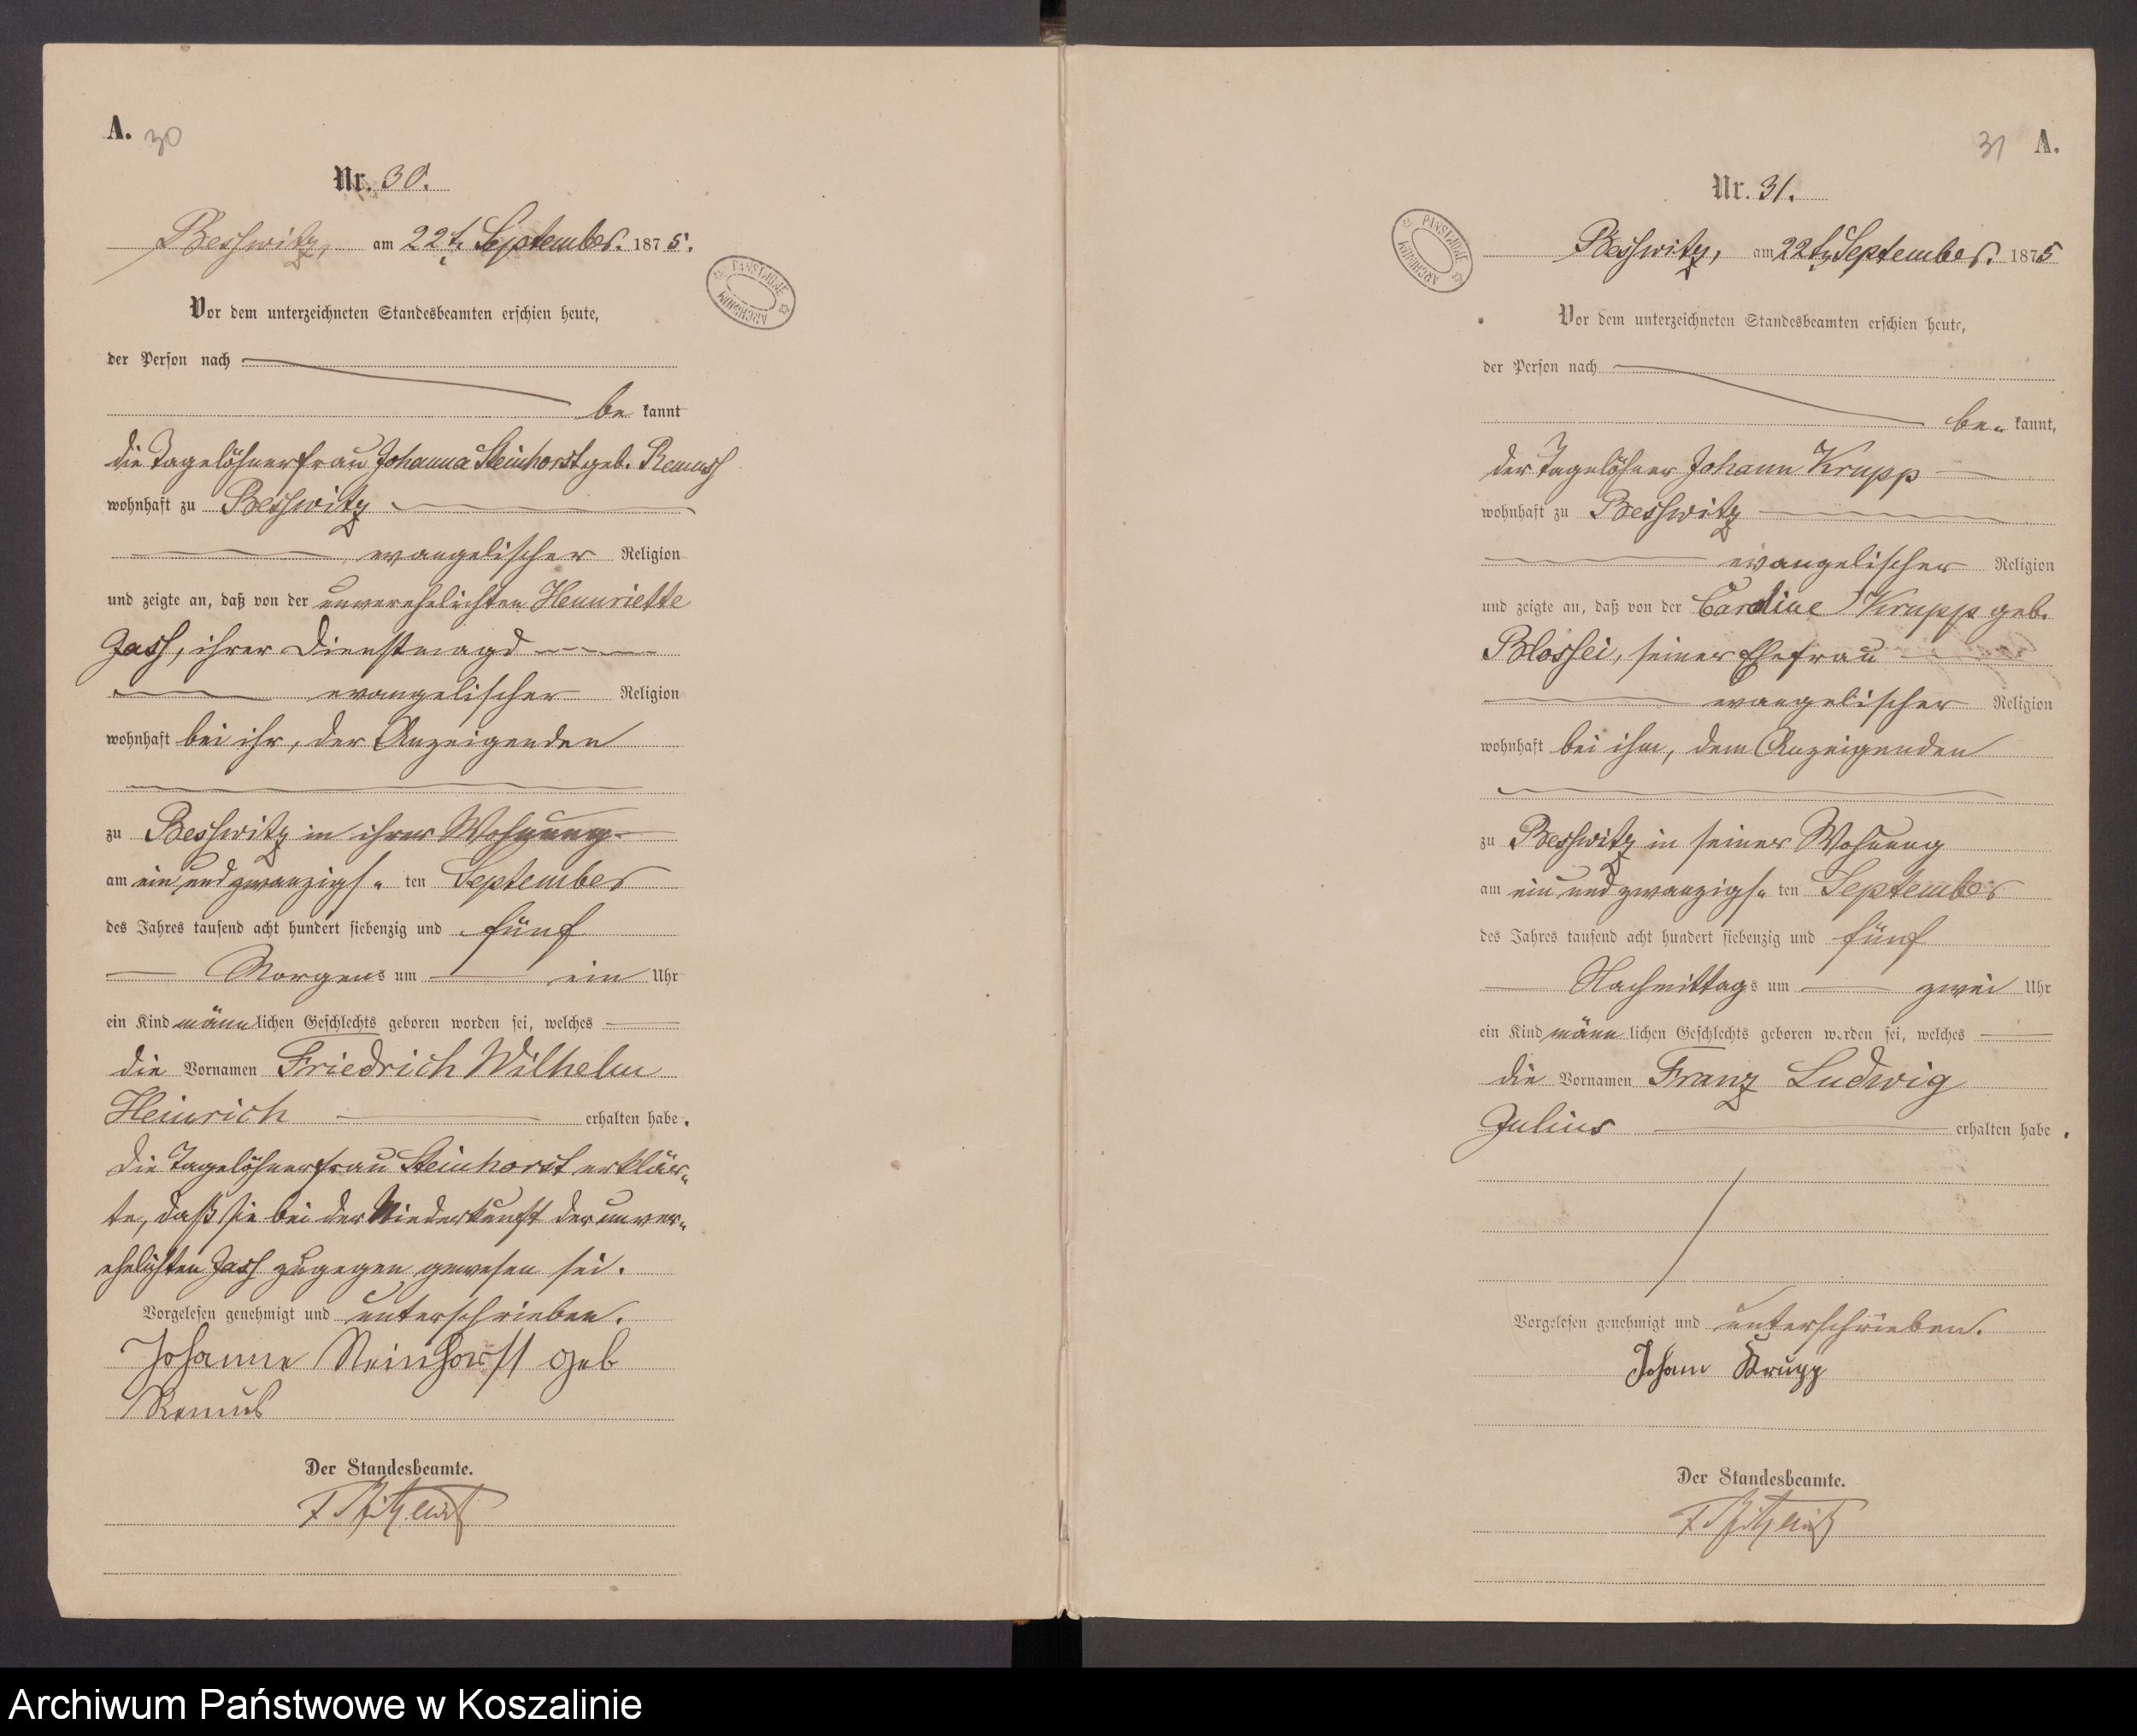 A. 30
Nr. 30.
Besswitz, am 22t. September. 1875.
PAŃSTWOWE ARCHIWUM
Vor dem unterzeichneten Standesbeamten erschien heute,
der Person nach
be kannt
die Tagelöhnerfrau Johanna Steinhorst geb. Remuss
wohnhaft zu Besswitz
evangelischer Religion
und zeigte an, daß von der unverehelichten Hennriette
Jass, ihrer Dienstmagd
evangelischer Religion
wohnhaft bei ihr, der Anzeigenden
zu Besswitz in ihrer Wohnung
am ein und zwanzigs„ ten September
des Jahres tausend acht hundert siebenzig und fünf
Morgens um ein Uhr
ein Kind männlichen Geschlechts geboren worden sei, welches
die Vornamen Friedrich Wilhelm
Heinrich erhalten habe.
Die Tagelöhnerfrau Steinhorst erklär„
te, daß sie bei der Niederkunft der unver„
ehelichten Jass zugegen gewesen sei.
Vorgelesen genehmigt und unterschrieben.
Johanne Steinhorst geb
Remus
Der Standesbeamte.
31 A.
Nr. 31.
PAŃSTWOWE ARCHIWUM
Besswitz, am 22t. September. 1875
Vor dem unterzeichneten Standesbeamten erschien heute,
der Person nach
be„ kannt,
der Tagelöhner Johann Krupp
wohnhaft zu Besswitz
evangelischer Religion
und zeigte an, daß von der Caroline Krupp geb.
Blossei, seiner Ehefrau
evangelischer Religion
wohnhaft bei ihm, dem Anzeigenden
zu Besswitz in seiner Wohnung
am ein und zwanzigs„ ten September
des Jahres tausend acht hundert siebenzig und fünf
Nachmittags um zwei Uhr
ein Kind männlichen Geschlechts geboren worden sei, welches
die Vornamen Franz Ludwig
Julius erhalten habe.
Vorgelesen genehmigt und unterschrieben.
Johann Krupp
Der Standesbeamte.
Archiwum Państwowe w Koszalinie